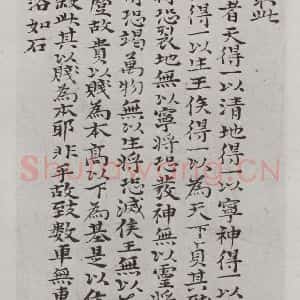 此
者天得一以清地得以寧神得一以
得一以生王侯得一以為天下貞其致
將恐裂地無以寧將恐發神無以靈將
將恐竭萬物無以生將恐滅侯王無以
故貴以賤為本高以下為基是以侯
此其以賤為本耶非乎故致數車無車
落如石
Shufawang.CN